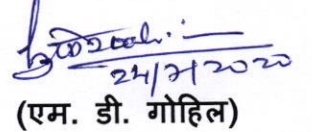 24/7/2020
(एम. डी. गोहिल)